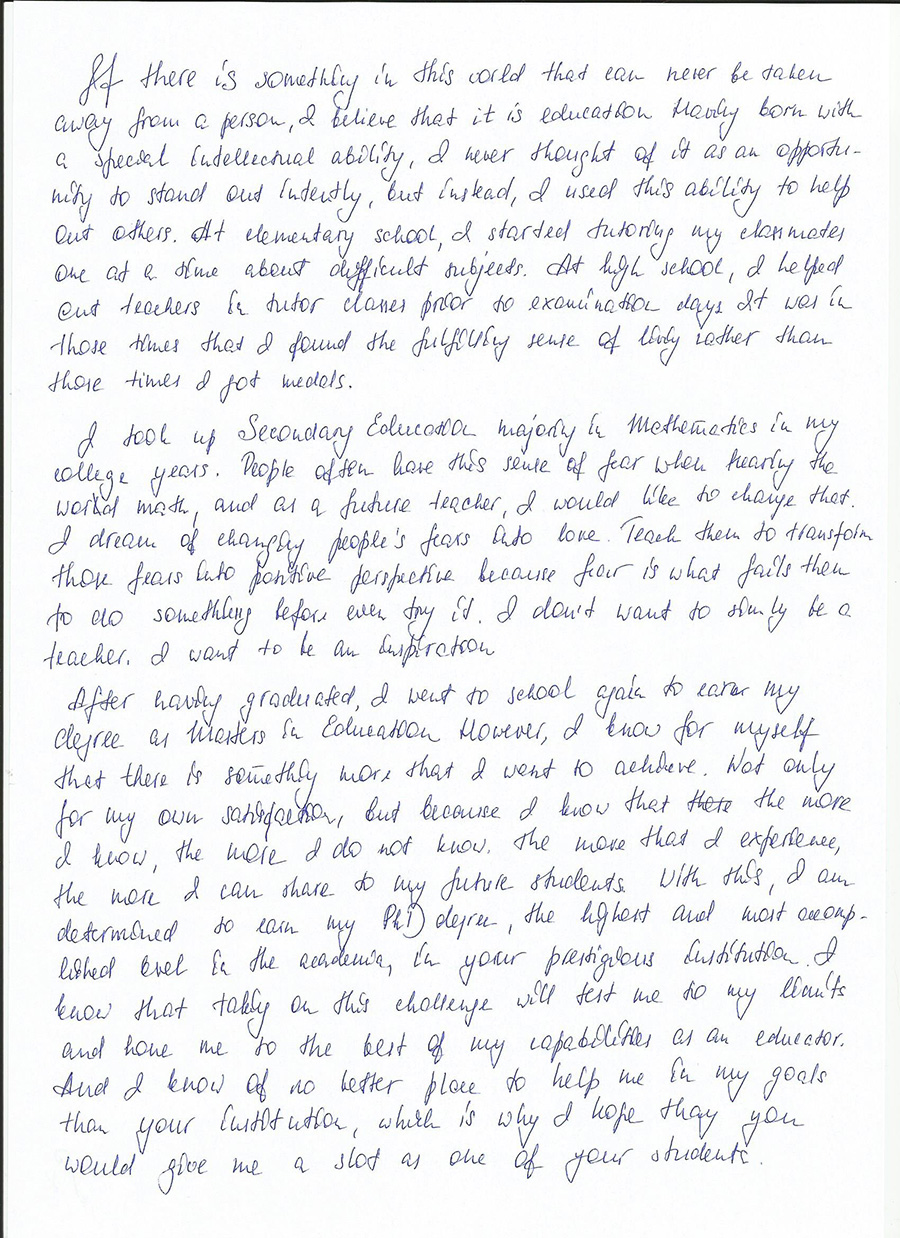 If there is something in this world that can never be taken
away from a person, I believe that it is education Having born with
a special intellectual ability, I never thought of it as an opportu-
nity to stand out intently, but instead, I used this ability to help
out others. At elementary school, I started tutoring my classmates
one at a time about difficult subjects. At high school, I helped
out teachers in tutor classes prior to examination days It was in
those times that I found the fulfilling sense of living rather than
those times I got medals.
I took up Secondary Education majoring in Mathematics in my
college years. People often have this sense of fear when hearing the
world math, and as a future teacher, I would like to change that.
I dream of changing people's fears into love. Teach them to transform
those fears into positive perspective because fear is what fails them
to do something before even try it. I don't want to simly be a
teacher. I want to be an inspiration
After having graduated, I went to school again to earn my
degree as Masters in Education However, I know for myself
that there is something more that I want to achieve. Not only
for my own satisfaction, but because I know that there the more
I know, the more I do not know. the more that I experience,
the more I can share to my future students. With this, I am
determined to earn my PhD degree, the highest and most accomp-
lished level in the academia, in your prestigious institution. I
know that taking on this challenge will test me to my limits
and hone me to the best of my capabilities as an educator.
And I know of no better place to help me in my goals
than your institution, which is why I hope thay you
would give me a slot as one of your students.